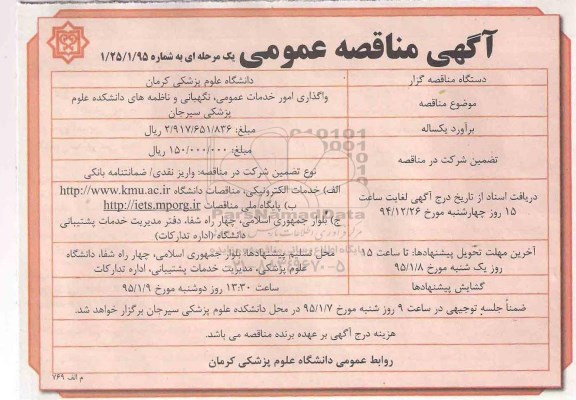 آگهی مناقصه عمومی یک مرحله ای به شماره ۱/۲۵/۱/۹۵
دستگاه مناقصه گزار
دانشگاه علوم پزشکی کرمان
موضوع مناقصه
واگذاری امور خدمات عمومی، نگهبانی و ناظمه های دانشکده علوم
پزشکی سیرجان
برآورد یکساله
مبلغ: ۲/۹۱۷/۶۵۱/۸۳۶ ریال
تضمین شرکت در مناقصه
مبلغ: ۱۵۰/۰۰۰/۰۰۰ ریال
نوع تضمین شرکت در مناقصه: واریز نقدی/ ضمانتنامه بانکی
دریافت اسناد از تاریخ درج آگهی لغایت ساعت
۱۵ روز چهارشنبه مورخ ۹۴/۱۲/۲۶
الف) خدمات الکترونیکی، مناقصات دانشگاه http://www.kmu.ac.ir
ب) پایگاه ملی مناقصات http://iets.mporg.ir
ج) بلوار جمهوری اسلامی، چهار راه شفا، دفتر مدیریت خدمات پشتیبانی
دانشگاه (اداره تدارکات)
آخرین مهلت تحویل پیشنهادها: تا ساعت ۱۵
روز یک شنبه مورخ ۹۵/۱/۸
محل تسلیم پیشنهادها: بلوار جمهوری اسلامی، چهار راه شفا، دانشگاه
علوم پزشکی، مدیریت خدمات پشتیبانی، اداره تدارکات
گشایش پیشنهادها
ساعت ۱۳:۳۰ روز دوشنبه مورخ ۹۵/۱/۹
ضمناً جلسه توجیهی در ساعت ۹ روز شنبه مورخ ۹۵/۱/۷ در محل دانشکده علوم پزشکی سیرجان برگزار خواهد شد.
هزینه درج آگهی بر عهده برنده مناقصه می باشد.
روابط عمومی دانشگاه علوم پزشکی کرمان
م الف ۷۶۹
ParsNamadData